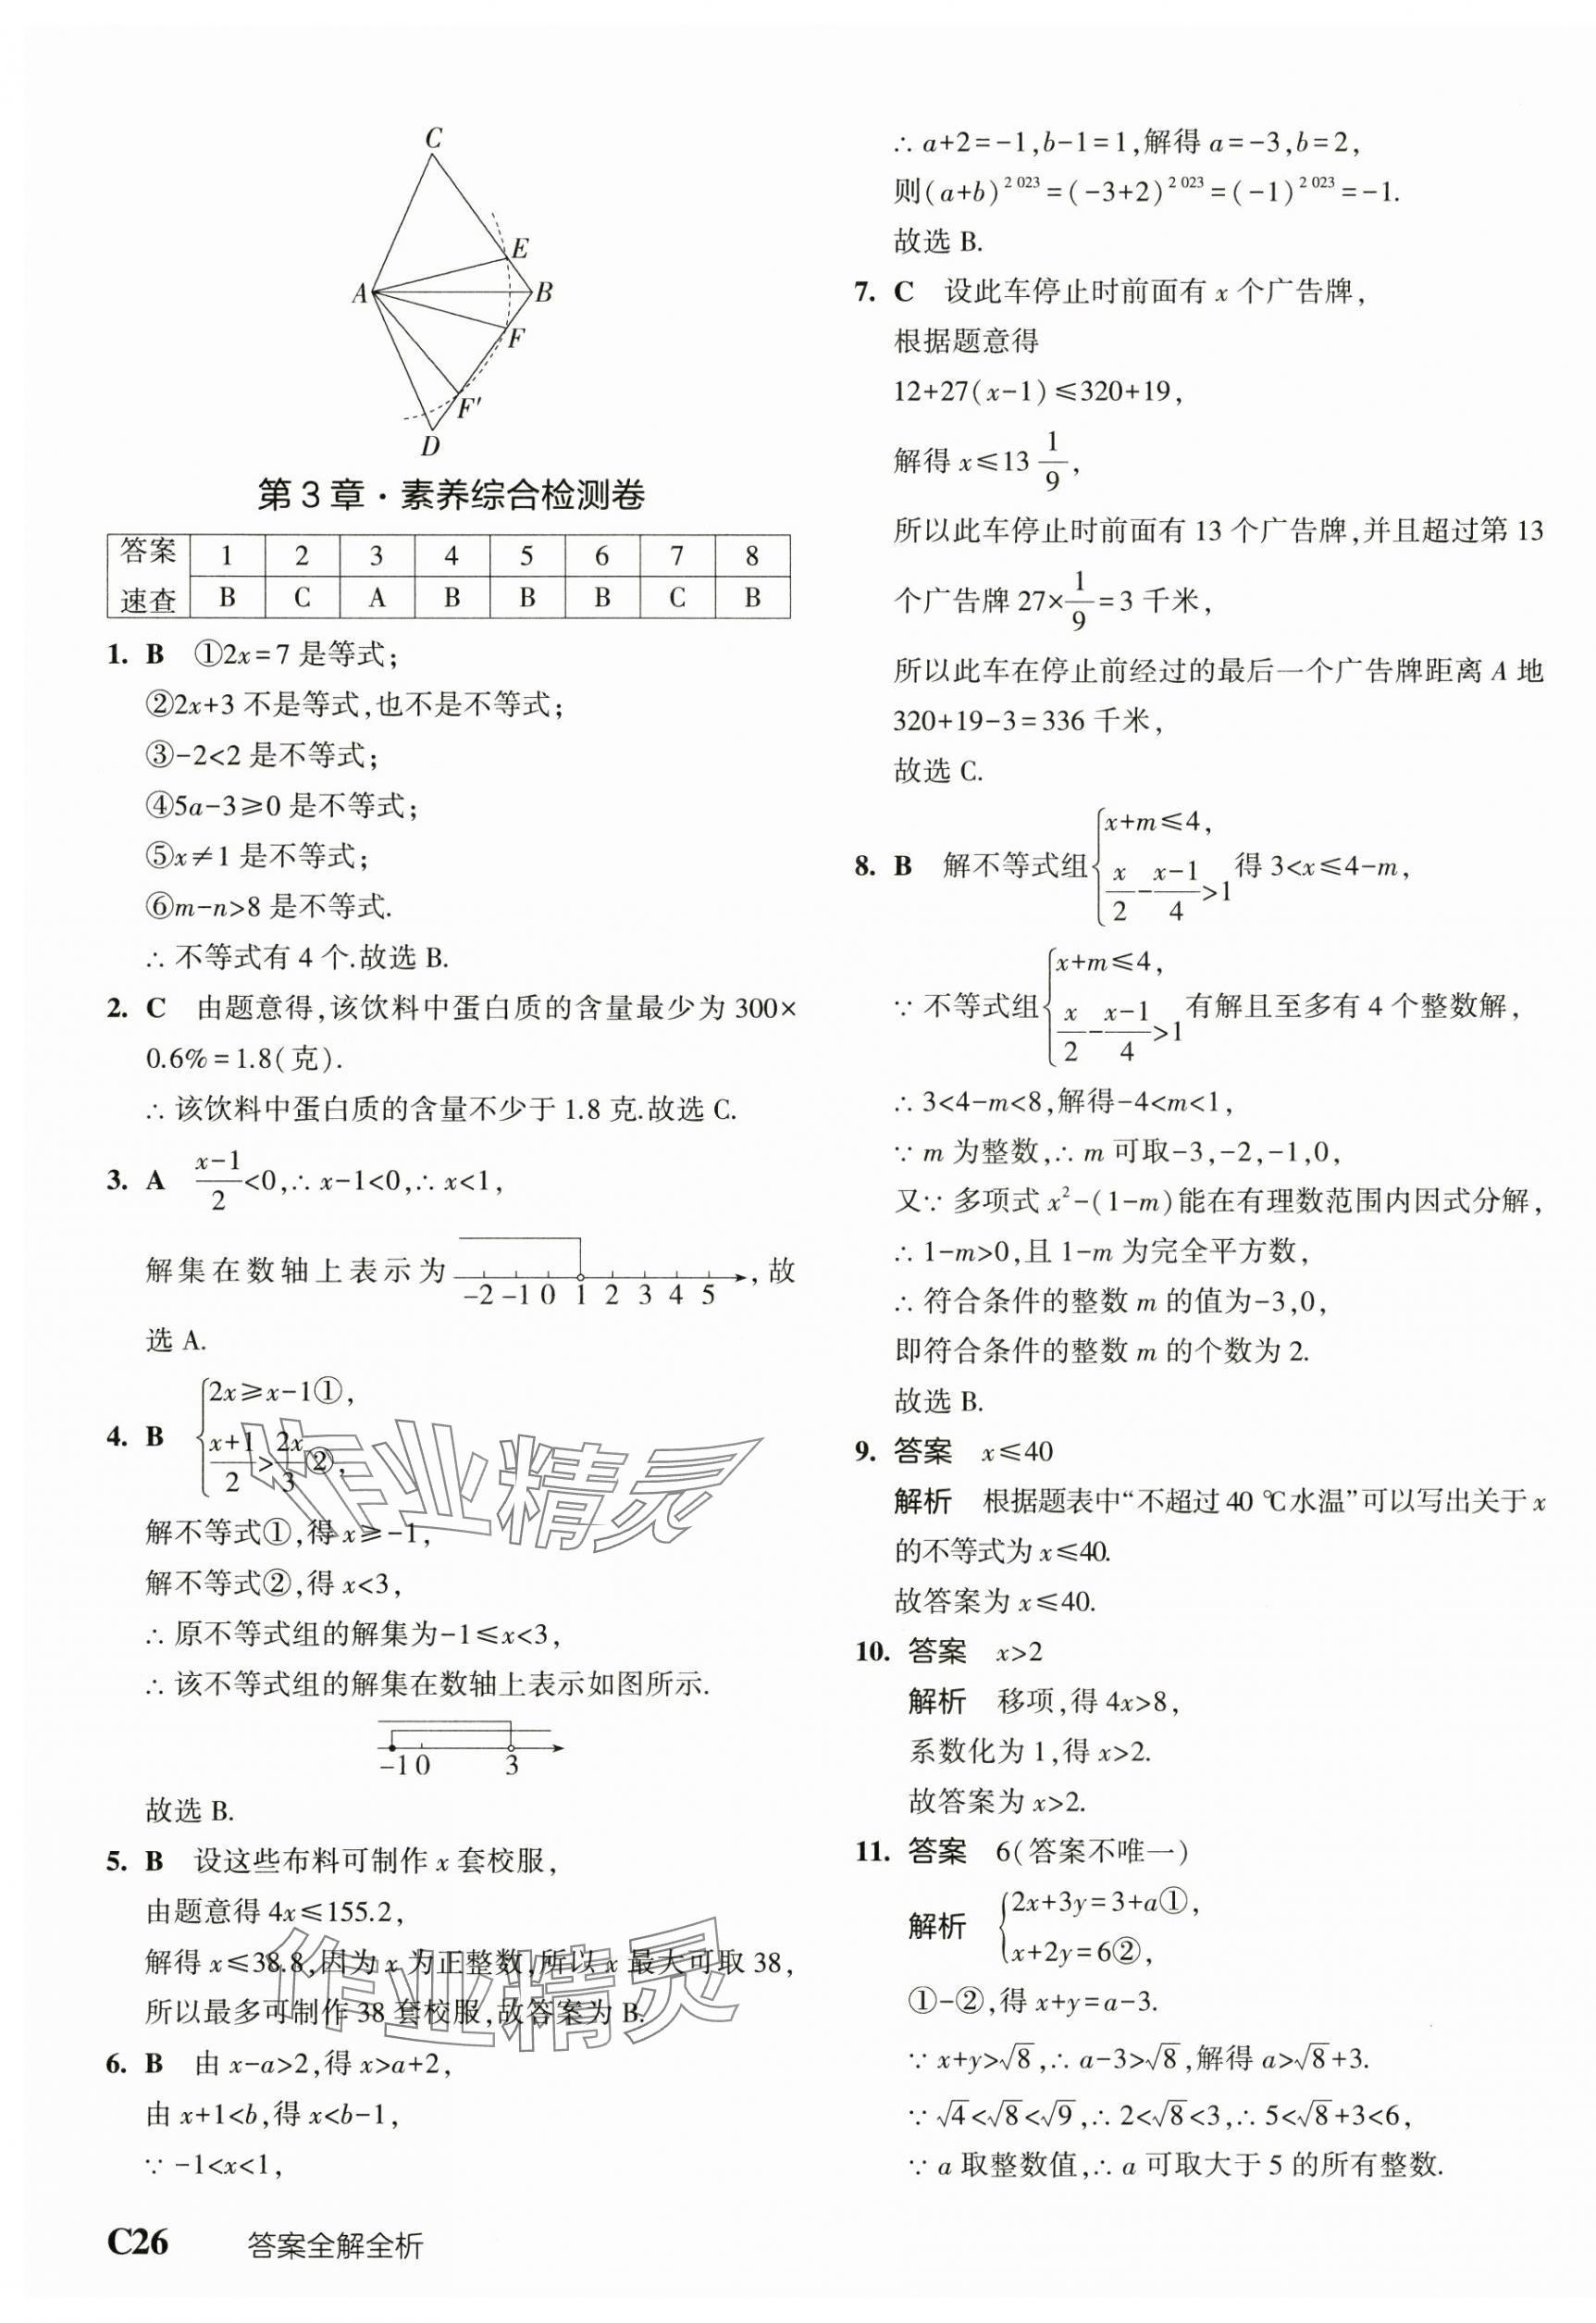 C
E
A
B
F
F'
D
第 3 章·素养综合检测卷
答案速查 1 2 3 4 5 6 7 8
B C A B B B C B
1. B ①2x=7 是等式;
②2x+3 不是等式,也不是不等式;
③-2<2 是不等式;
④5a-3≥0 是不等式;
⑤x≠1 是不等式;
⑥m-n>8 是不等式.
∴ 不等式有 4 个.故选 B.
2. C 由题意得,该饮料中蛋白质的含量最少为 300×
0.6%=1.8(克).
∴ 该饮料中蛋白质的含量不少于 1.8 克.故选 C.
3. A \frac{x-1}{2}<0,∴ x-1<0,∴ x<1,
解集在数轴上表示为 -2 -1 0 1 2 3 4 5 ,故
选 A.
4. B {2x≥x-1①, \frac{x+1}{2}>\frac{2x}{3}②,
解不等式①,得 x≥-1,
解不等式②,得 x<3,
∴ 原不等式组的解集为-1≤x<3,
∴ 该不等式组的解集在数轴上表示如图所示.
-1 0 3
故选 B.
5. B 设这些布料可制作 x 套校服,
由题意得 4x≤155.2,
解得 x≤38.8,因为 x 为正整数,所以 x 最大可取 38,
所以最多可制作 38 套校服,故答案为 B.
6. B 由 x-a>2,得 x>a+2,
由 x+1<b,得 x<b-1,
∵ -1<x<1,
C26 答案全解全析
∴ a+2=-1,b-1=1,解得 a=-3,b=2,
则(a+b)^{2 023}=(-3+2)^{2 023}=(-1)^{2 023}=-1.
故选 B.
7. C 设此车停止时前面有 x 个广告牌,
根据题意得
12+27(x-1)≤320+19,
解得 x≤13\frac{1}{9},
所以此车停止时前面有 13 个广告牌,并且超过第 13
个广告牌 27×\frac{1}{9}=3 千米,
所以此车在停止前经过的最后一个广告牌距离 A 地
320+19-3=336 千米,
故选 C.
8. B 解不等式组{x+m≤4, \frac{x}{2}-\frac{x-1}{4}>1 得 3<x≤4-m,
∵ 不等式组{x+m≤4, \frac{x}{2}-\frac{x-1}{4}>1 有解且至多有 4 个整数解,
∴ 3<4-m<8,解得-4<m<1,
∵ m 为整数,∴ m 可取-3,-2,-1,0,
又∵ 多项式 x²-(1-m)能在有理数范围内因式分解,
∴ 1-m>0,且 1-m 为完全平方数,
∴ 符合条件的整数 m 的值为-3,0,
即符合条件的整数 m 的个数为 2.
故选 B.
9. 答案 x≤40
解析 根据题表中“不超过 40 ℃水温”可以写出关于 x
的不等式为 x≤40.
故答案为 x≤40.
10. 答案 x>2
解析 移项,得 4x>8,
系数化为 1,得 x>2.
故答案为 x>2.
11. 答案 6(答案不唯一)
解析 {2x+3y=3+a①, x+2y=6②,
①-②,得 x+y=a-3.
∵ x+y>√8,∴ a-3>√8,解得 a>√8+3.
∵ √4<√8<√9,∴ 2<√8<3,∴ 5<√8+3<6,
∵ a 取整数值,∴ a 可取大于 5 的所有整数.
作业精灵
作业精灵